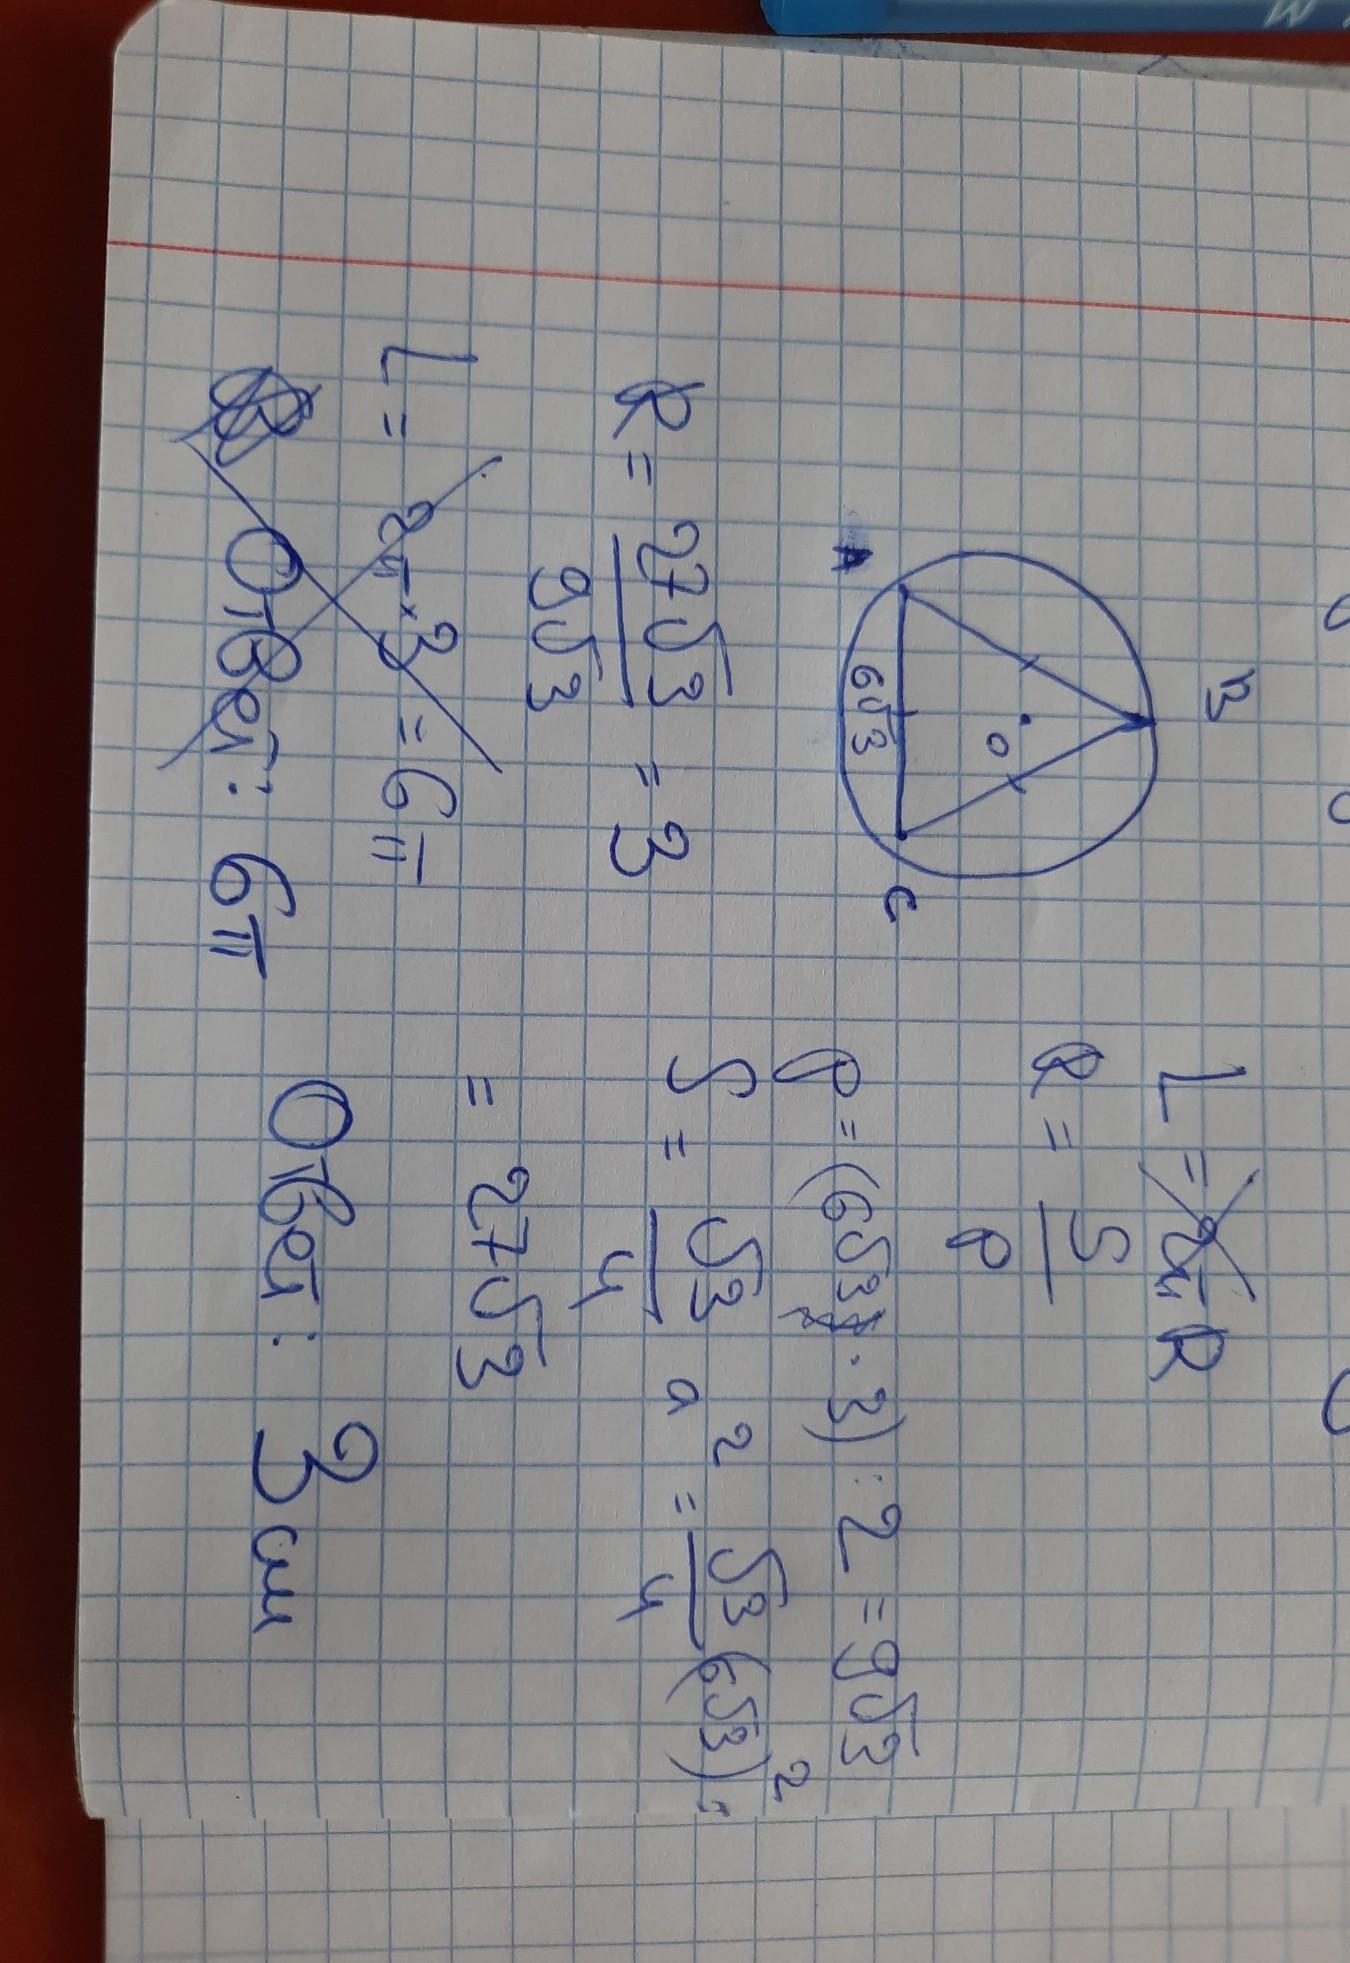 B
O
A
6√3
C
L = 2πR
R = S/P
P = (6√3 · 3) : 2 = 9√3
S = √3/4 a² = √3/4 (6√3)² =
= 27√3
R = 27√3/9√3 = 3
L = 2π × 3 = 6π
Ответ: 6π
Ответ: 3 см